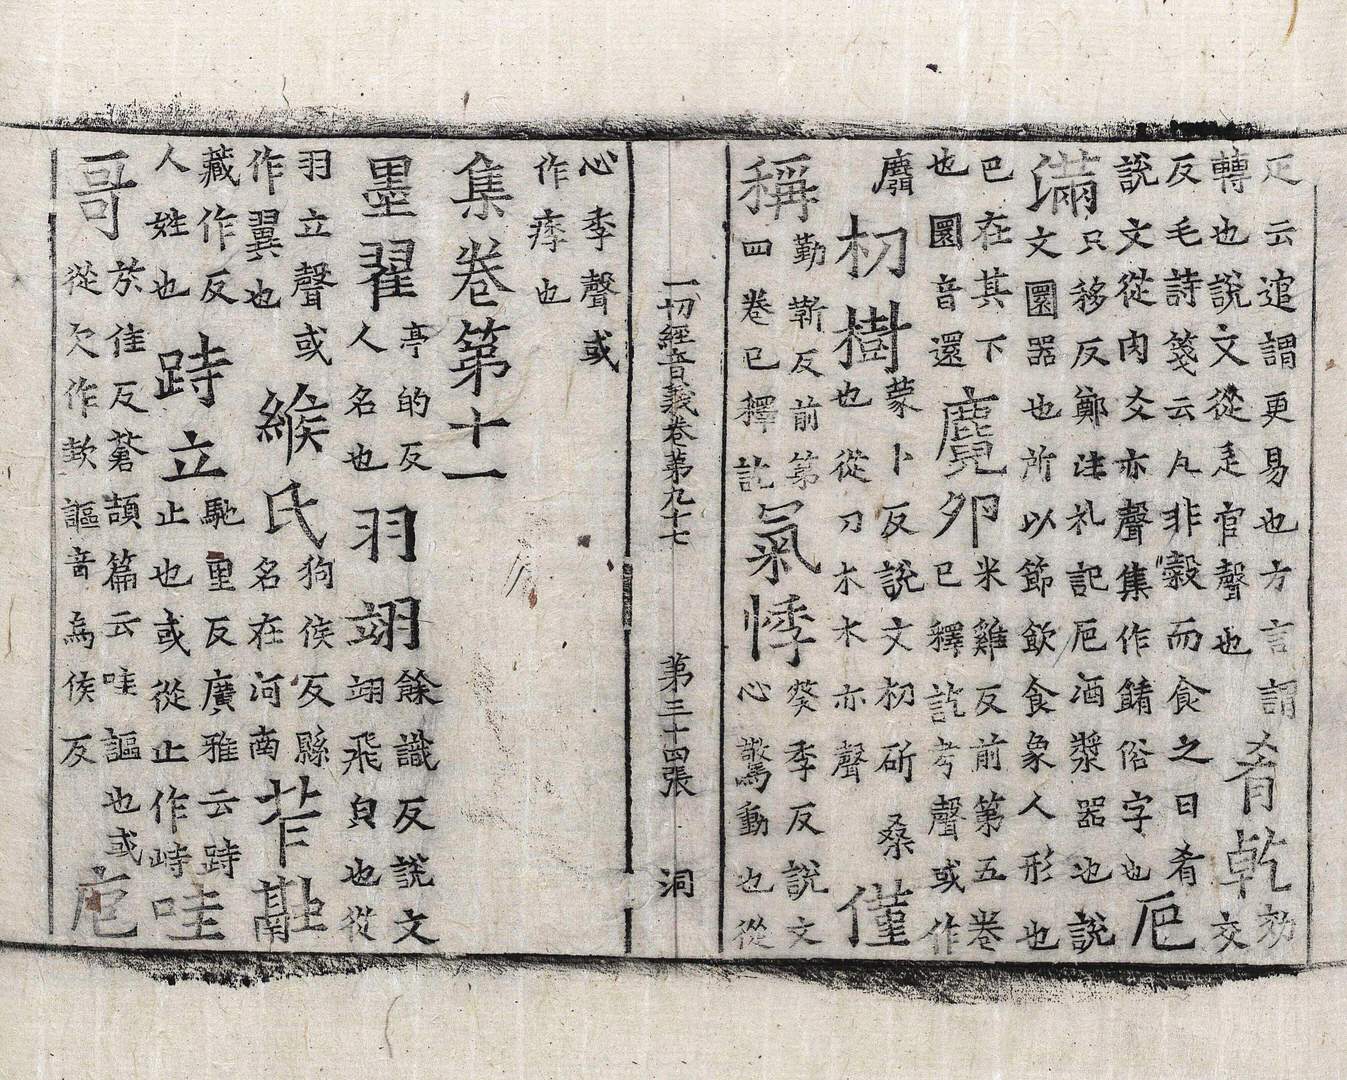 疋云逭謂更易也方言謂
轉也說文從辵官聲也
肴乾
効
交
反毛詩箋云凡非穀而食之曰肴
說文從肉爻亦聲集作餚俗字也
巵
滿
只移反鄭注札記巵酒漿器也說
文圜器也所以節飲食象人形也
巴在其下
也圜音還
麑夘
米雞反前第五卷
巳釋訖考聲或作
麛
朷樹
蒙卜反說文朷斫桑
也從刀木木亦聲
僅
稱
勤靳反前第
四卷已釋訖
氣悸
葵季反說文
心驚動也從
一切經音義卷第九十七 第三十四張 洞
心季聲或
作痵也
集卷第十一
墨翟
亭的反
人名也
羽翊
餘識反說文
翊飛皃也從
羽立聲或
作翼也
緱氏
狗侯反縣
名在河南
苲
藏作反
人姓也
跱立
馳里反廣雅云跱
止也或從止作峙
哇
哥
於佳反蒼頡篇云哇謳也或
從欠作 謳音烏侯反
巵